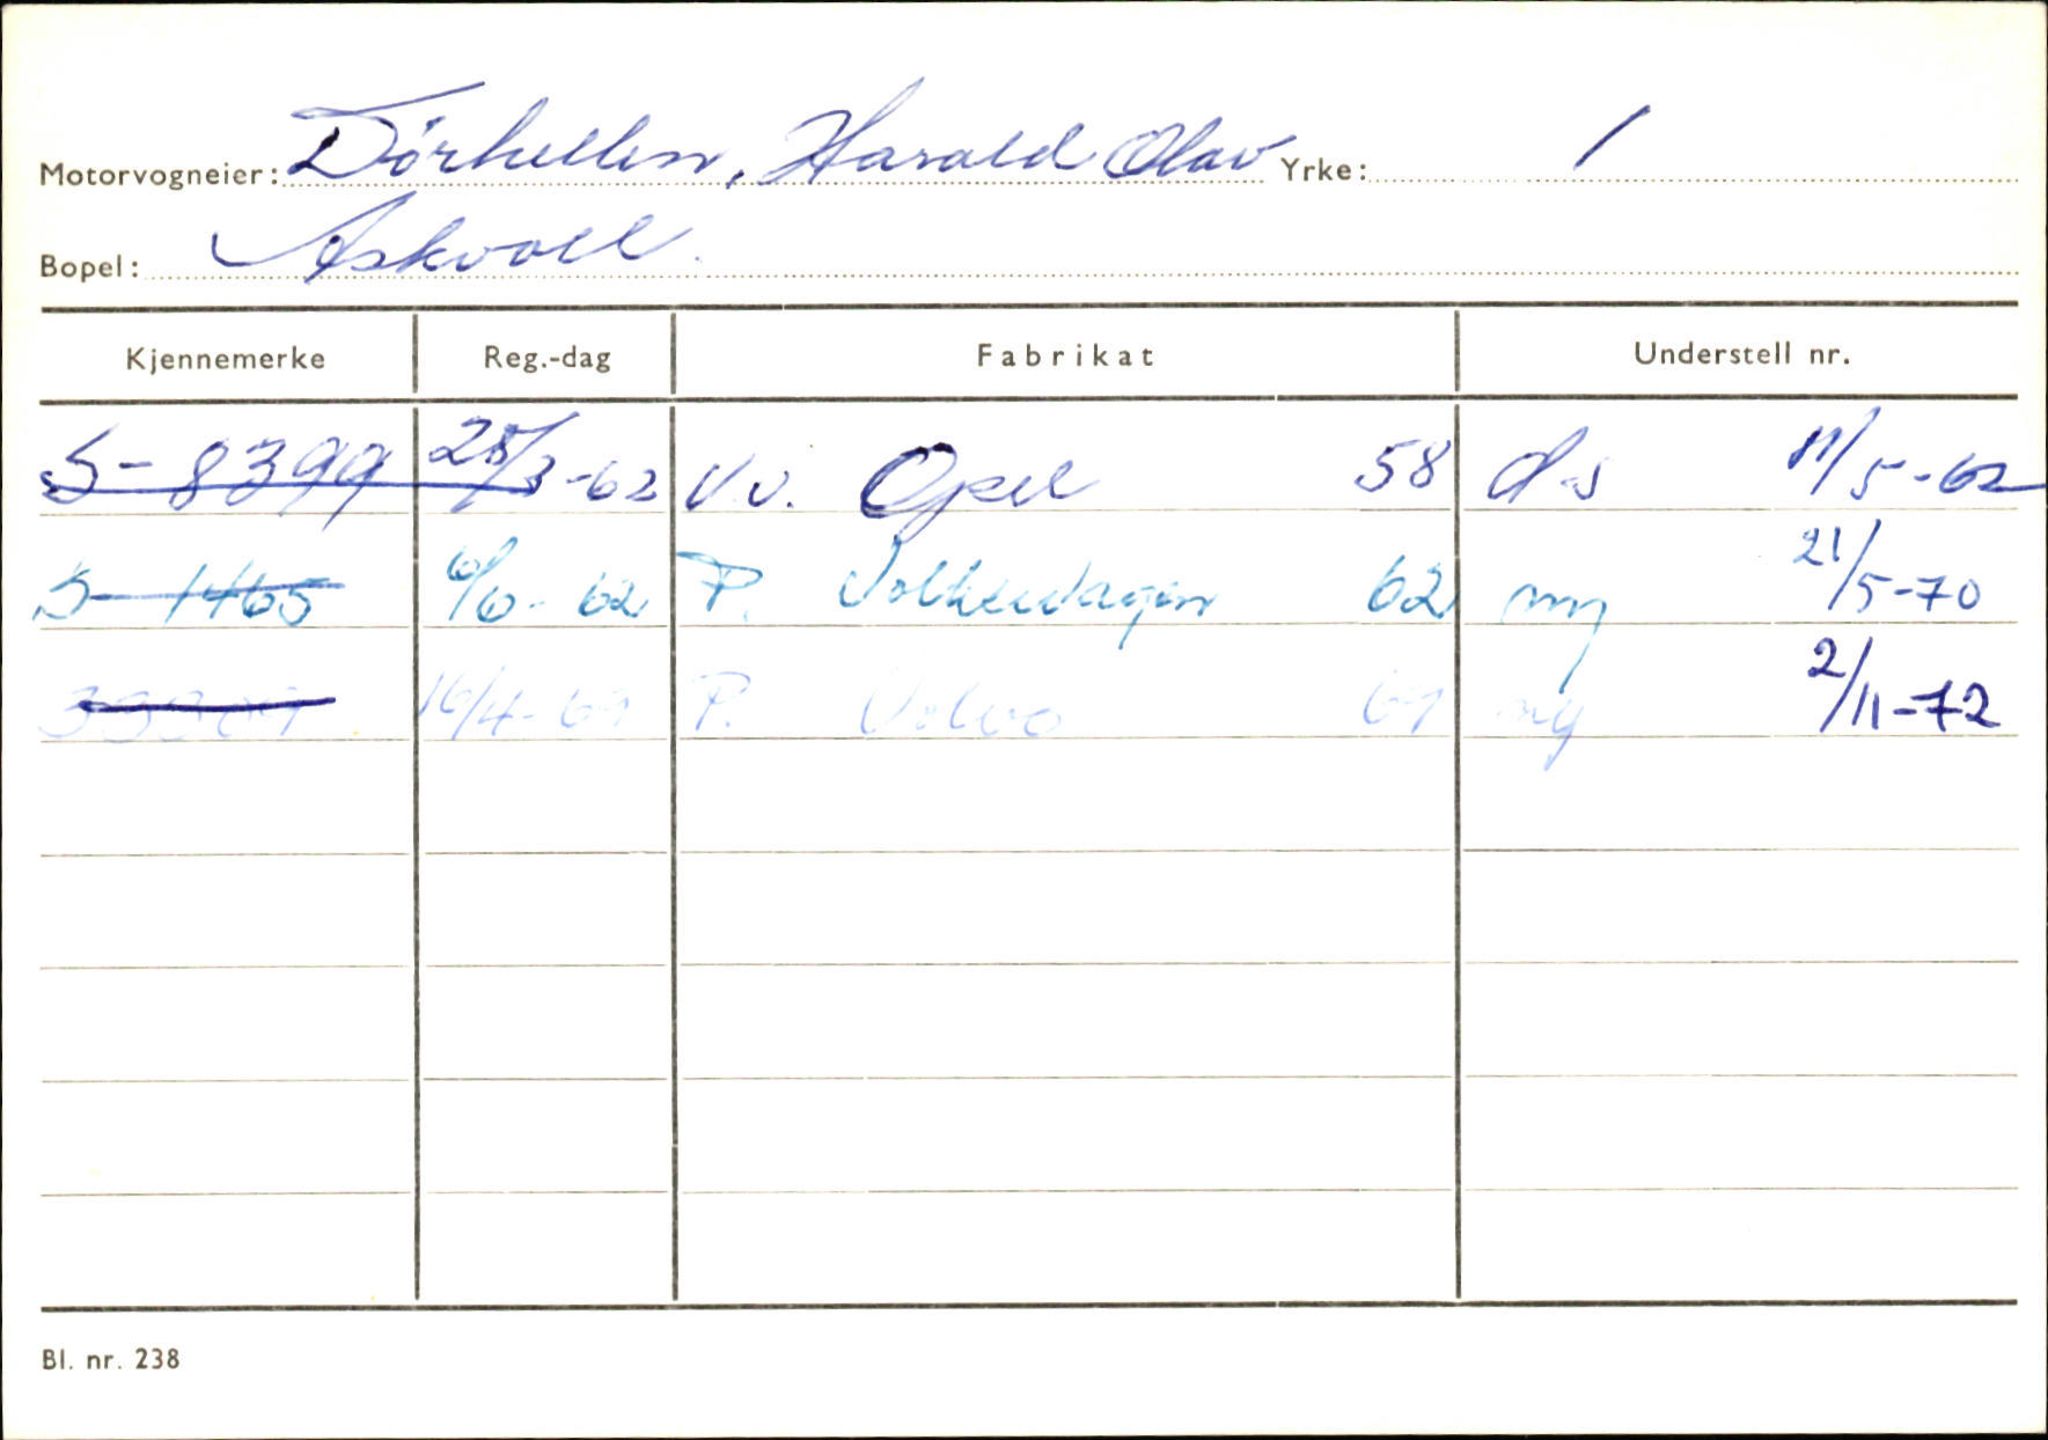 Motorvogneier: Dørhellen, Harald Olav Yrke: /
Bopel: Askvoll.
Kjennemerke Reg.-dag Fabrikat Understell nr.
S-8399 28/3-62 V.v. Opel 58 d-s 11/5-62
S-1465 6/6-62 P. Volkswagen 62 ny 21/5-70
16/4-69 P. Volvo 69 ny 2/11-72
Bl. nr. 238